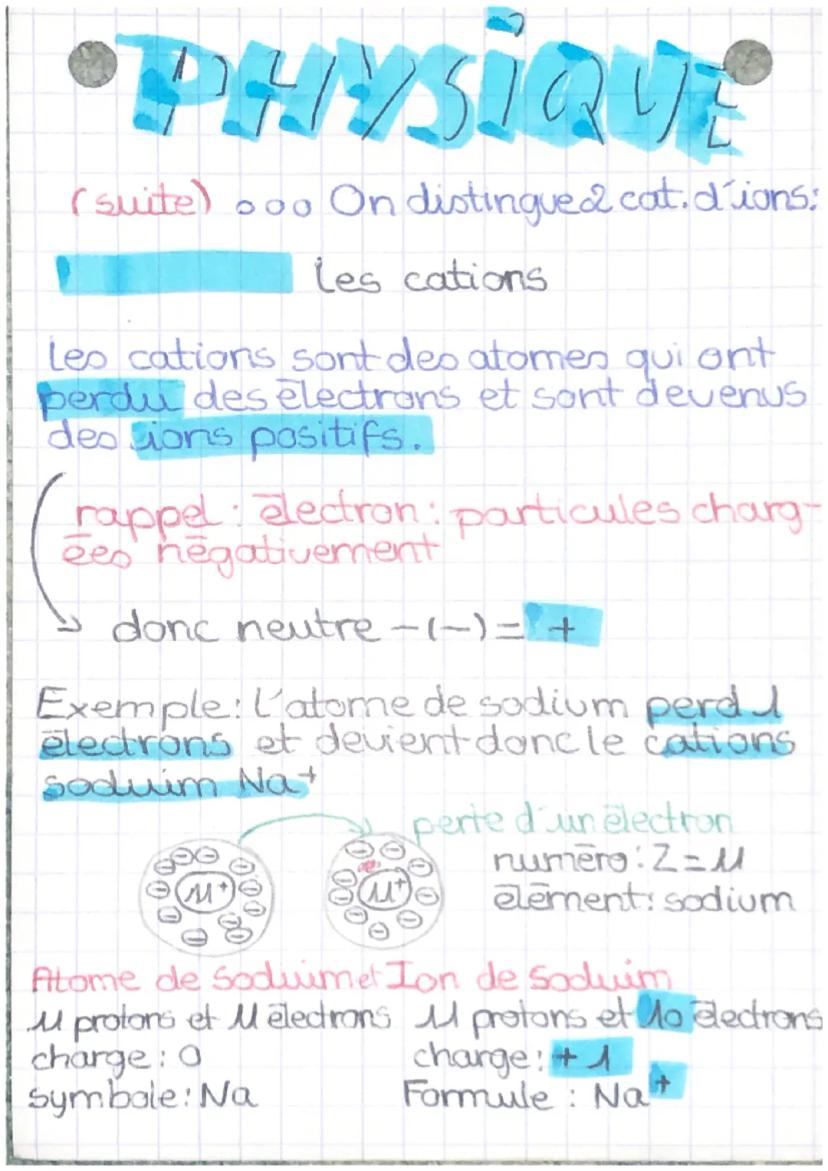 PHYSIQUE
(suite) ooo On distingue 2 cat. d'ions:
les cations
Les cations sont des atomes qui ont
perdu des électrons et sont devenus
des ions positifs.
rappel : électron : particules charg-
ées négativement
donc neutre -(-) = +
Exemple: L'atome de sodium perd 1
électrons et devient donc le cations
soduim Na+
perte d'un électron
11+
11+
numéro : Z = 11
élément: sodium
Atome de soduim et Ion de soduim
11 protons et 11 électrons
11 protons et 10 électrons
charge : 0
charge : +1
symbole : Na
Formule : Na+